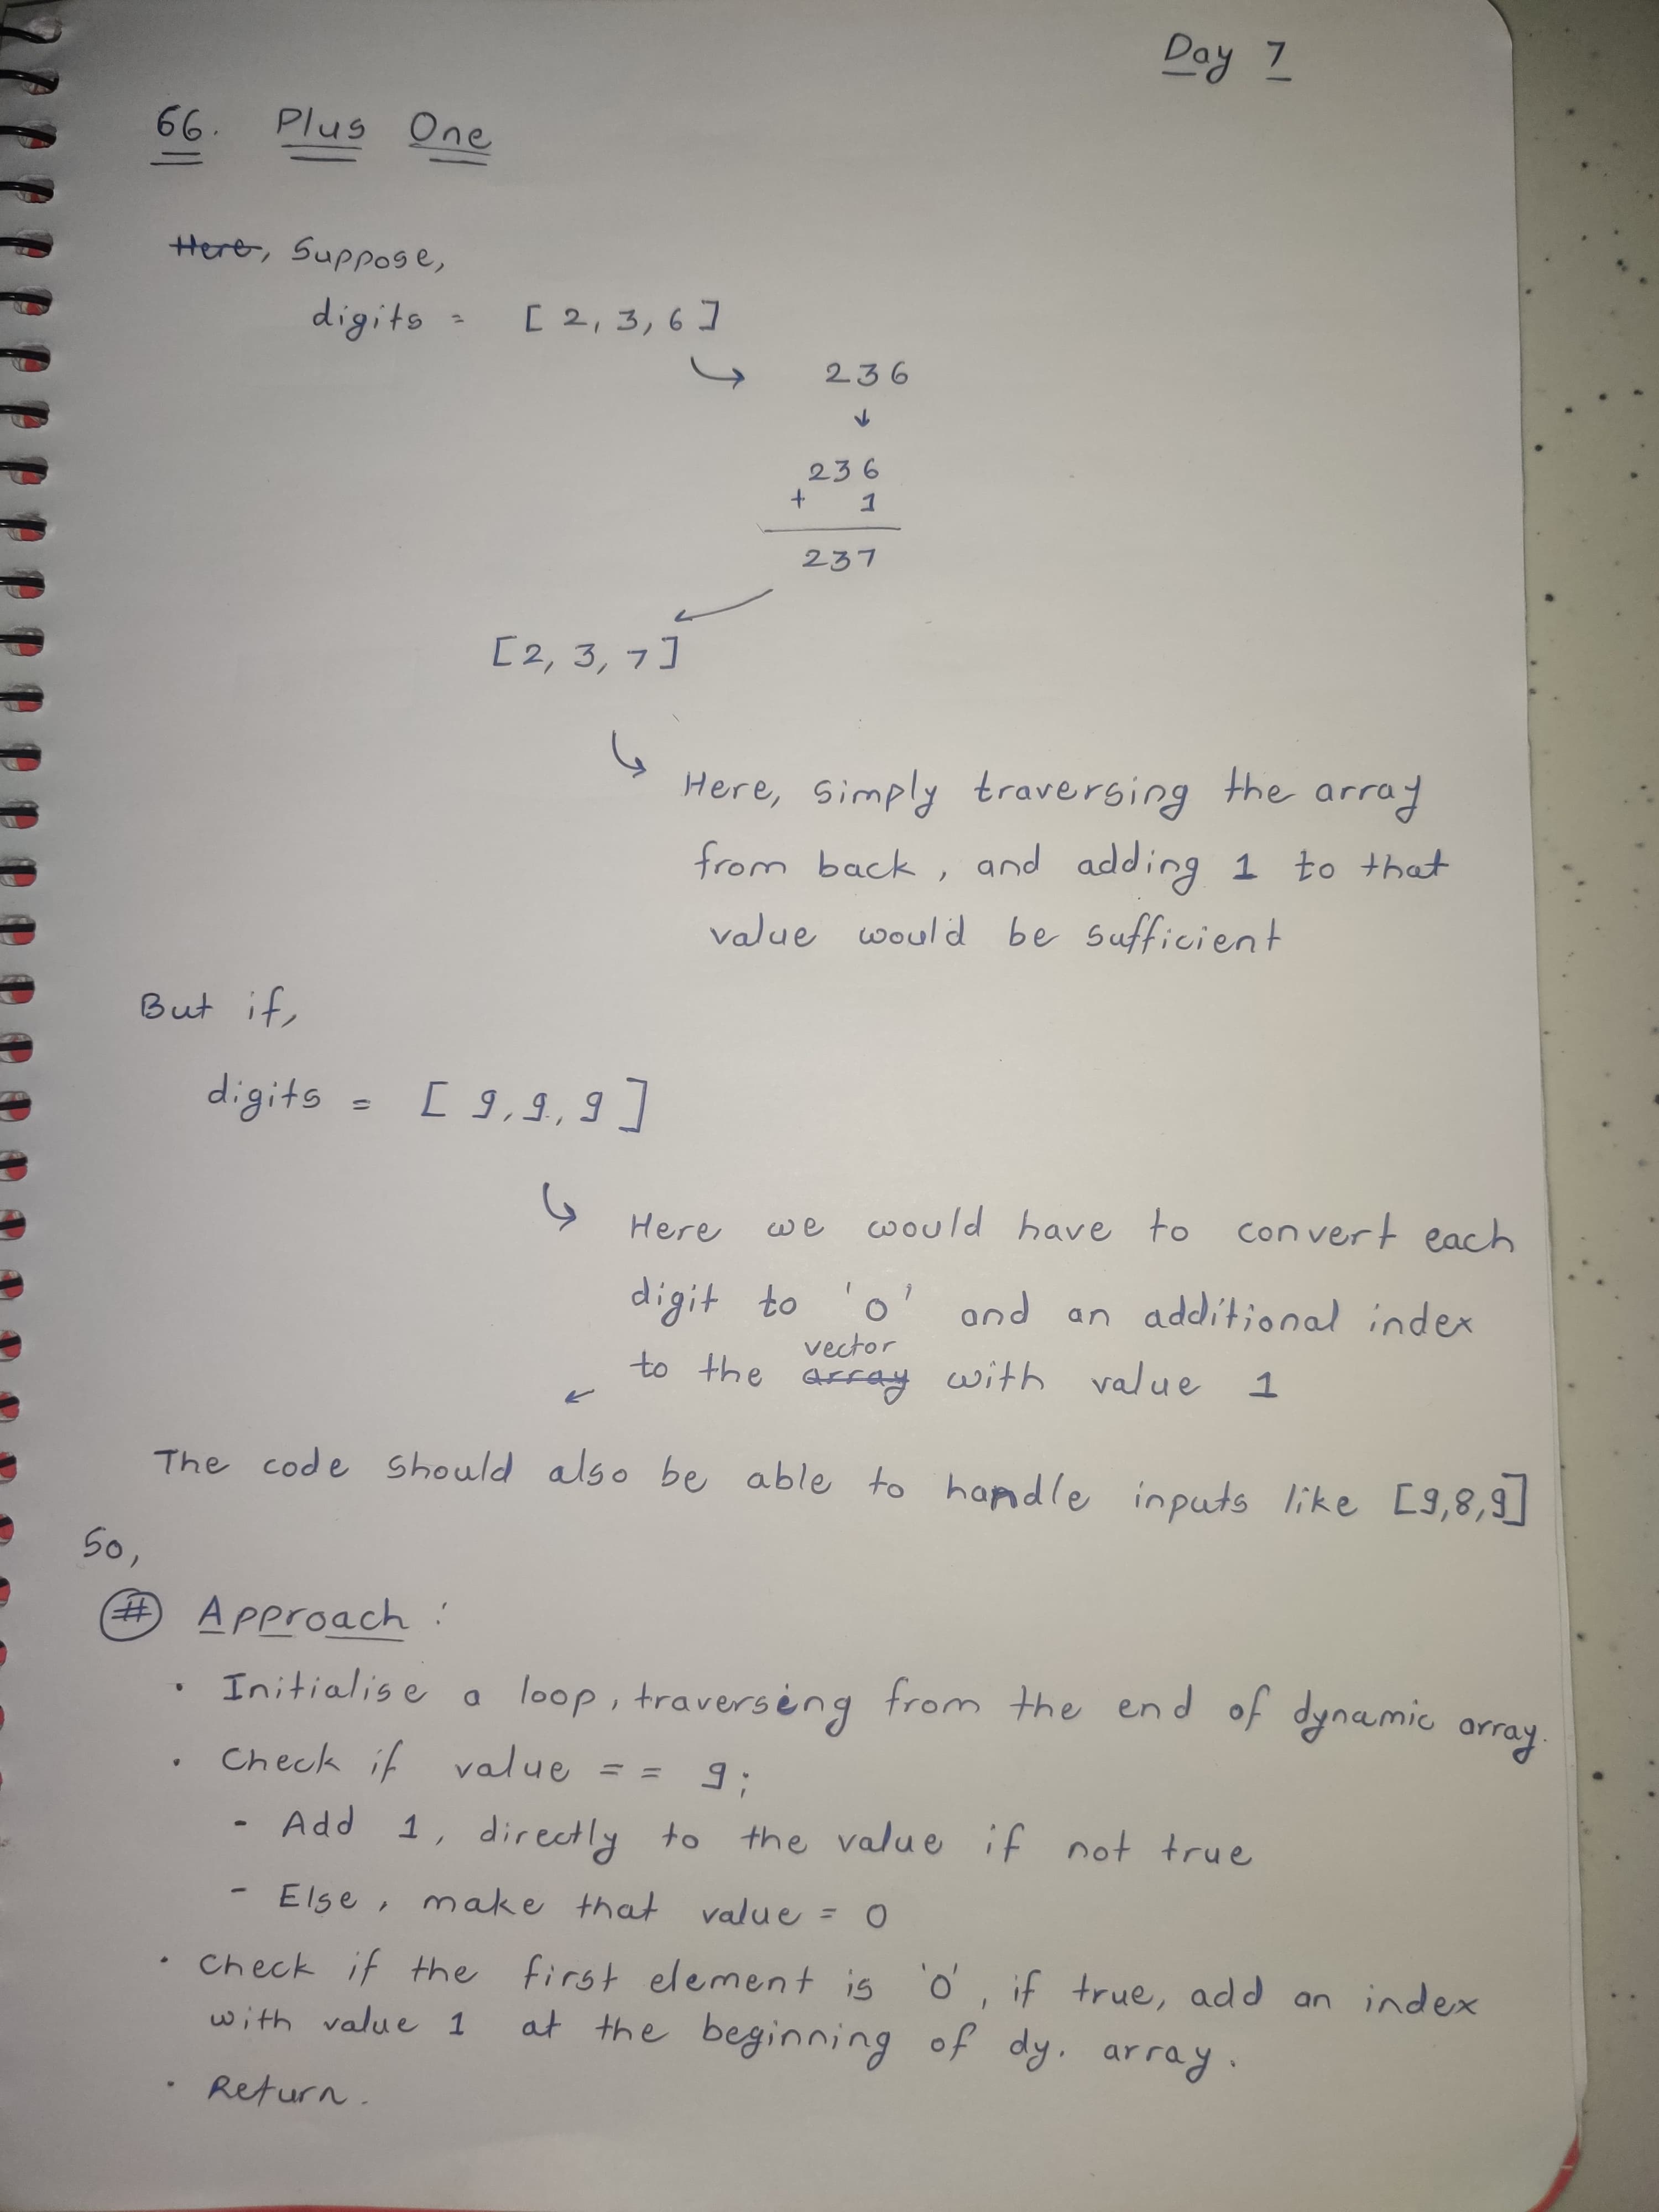 Day 7
66. Plus One
Here, Suppose,
digits = [ 2, 3, 6 ]
236
236
+ 1
237
[ 2, 3, 7 ]
Here, simply traversing the array
from back, and adding 1 to that
value would be sufficient
But if,
digits = [ 9, 9, 9 ]
Here we would have to convert each
digit to '0' and an additional index
vector
to the array with value 1
The code should also be able to handle inputs like [9,8,9]
So,
# Approach :
• Initialise a loop, traversing from the end of dynamic array.
• Check if value == 9;
- Add 1, directly to the value if not true
- Else, make that value = 0
• Check if the first element is '0', if true, add an index
with value 1 at the beginning of dy. array.
• Return.